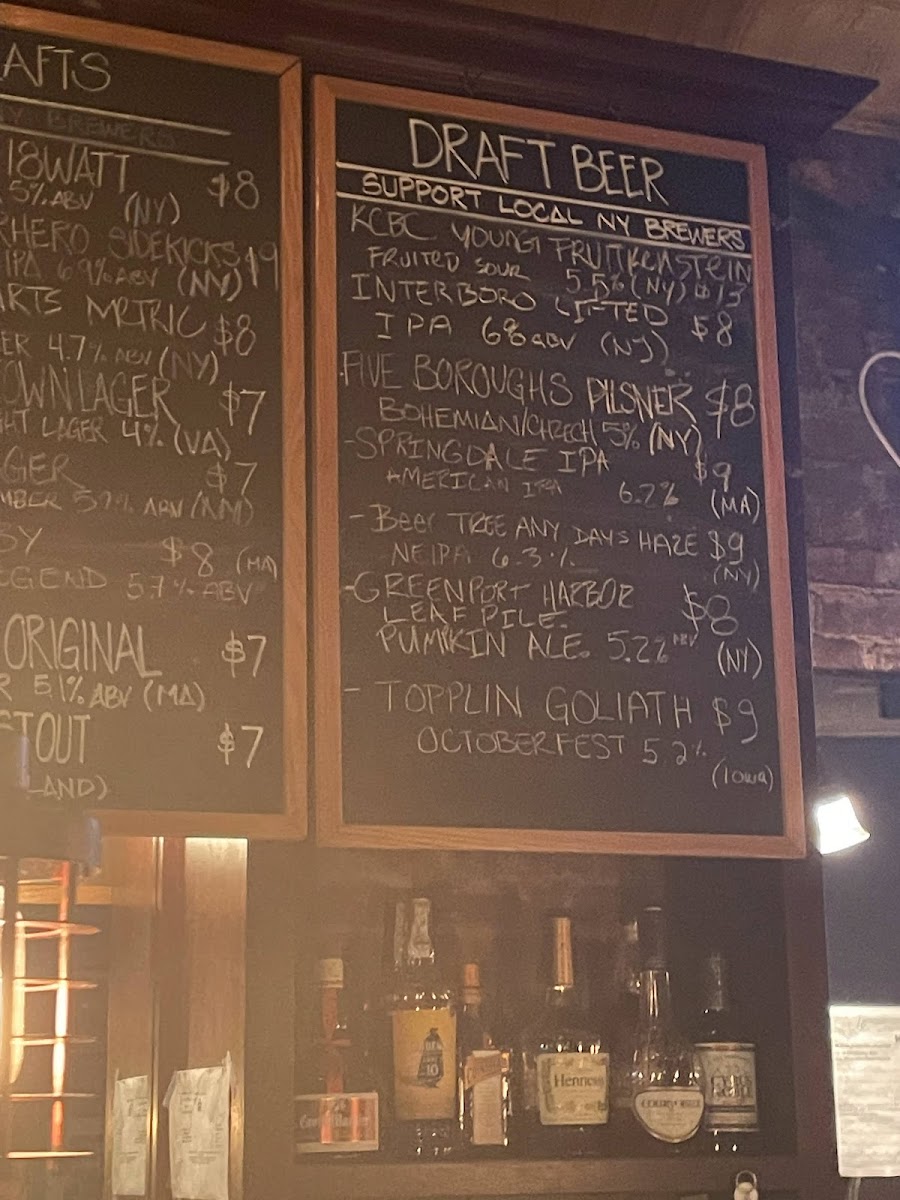 AFTS
NY BREWERS
18WATT $8
5% ABV (NY)
RHERO SIDEKICKS $9
IPA 6.9% ABV (NY)
ARTS METRIC $8
ER 4.7% ABV (NY)
OWN LAGER $7
HT LAGER 4% (VA)
GER $7
MBER ABV
SY $8 (MA)
EGEND 5.7% ABV
ORIGINAL $7
R 5.1% ABV (MA)
STOUT $7
LAND)
DRAFT BEER
SUPPORT LOCAL NY BREWERS
KCBC YOUNG FRUITKENSTEIN
FRUITED SOUR 5.5% (NY) $13
INTERBORO LIFTED $8
IPA 6% ABV (NY)
FIVE BOROUGHS PILSNER $8
BOHEMIAN/CHZECH 5% (NY)
- SPRINGDALE IPA $9
AMERICAN IPA 6.7% (MA)
- Beer TREE ANY DAYS HAZE $9
NEIPA 6.3% (NY)
- GREENPORT HARBOR $8
LEAF PILE
PUMPKIN ALE 5.2% ABV (NY)
- TOPPLIN GOLIATH $9
OCTOBERFEST 5.2%
(Iowa)
10
Hennessy